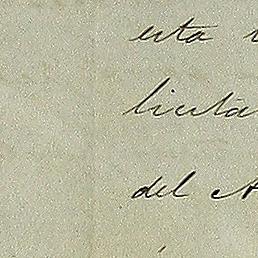 esta
licita
del A